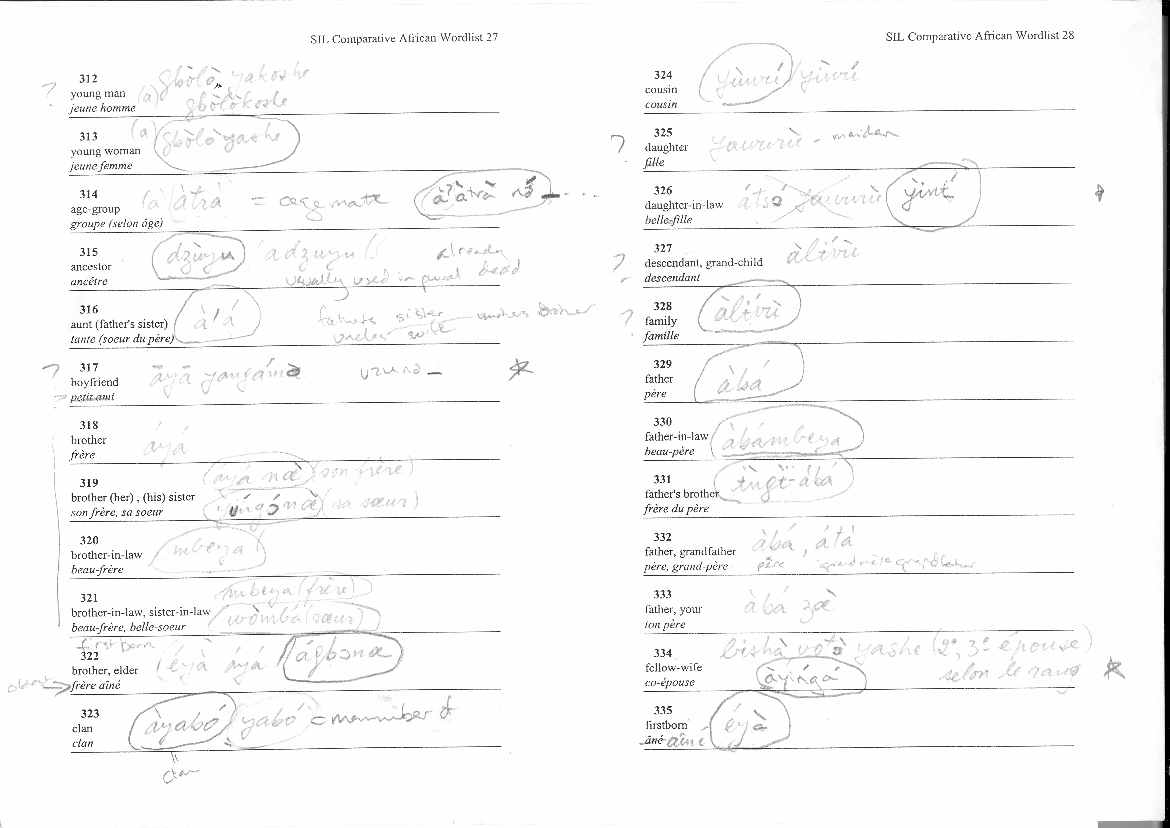 SIL Comparative African Wordlist 27
312
young man
jeune homme
?
(a) gbòlò yakoshe
gbòlòkoshe
313
young woman
jeune femme
(a) gbòlò yashe
314
age-group
groupe (selon âge)
(à) àtrà = age mate
315
ancestor
ancêtre
dzùyu / adzuyu
already dead
usually used in pural
316
aunt (father's sister)
tante (soeur du père)
fathers sister
317
boyfriend
petit ami
?
318
brother
frère
áyá
319
brother (her) , (his) sister
son frère, sa soeur
(áyá nœ (son frère)
(sa sœur)
320
brother-in-law
beau-frère
mbeya
321
brother-in-law, sister-in-law
beau-frère, belle-soeur
mbeya (frère)
wòmbá (sœur)
first born
322
brother, elder
frère aîné
éyà áyá ágbɔnœ
323
clan
clan
àyabó yabó = memmber of
clan
SIL Comparative African Wordlist 28
324
cousin
cousin
yùwú / yùwú
325
daughter
fille
?
- maiden
326
daughter-in-law
belle-fille
327
descendant, grand-child
descendant
?
àlívù
328
family
famille
?
àlívù
329
father
père
àbá
330
father-in-law
beau-père
àbámbeya
331
father's brother
frère du père
332
father, grandfather
père, grand-père
àbá , átá
père
333
father, your
ton père
àbá zœ
334
fellow-wife
co-épouse
bishà votɔ yashe (2e, 3e épouse
selon le rang)
àyíngá
335
firstborn
âné aîné
éyà